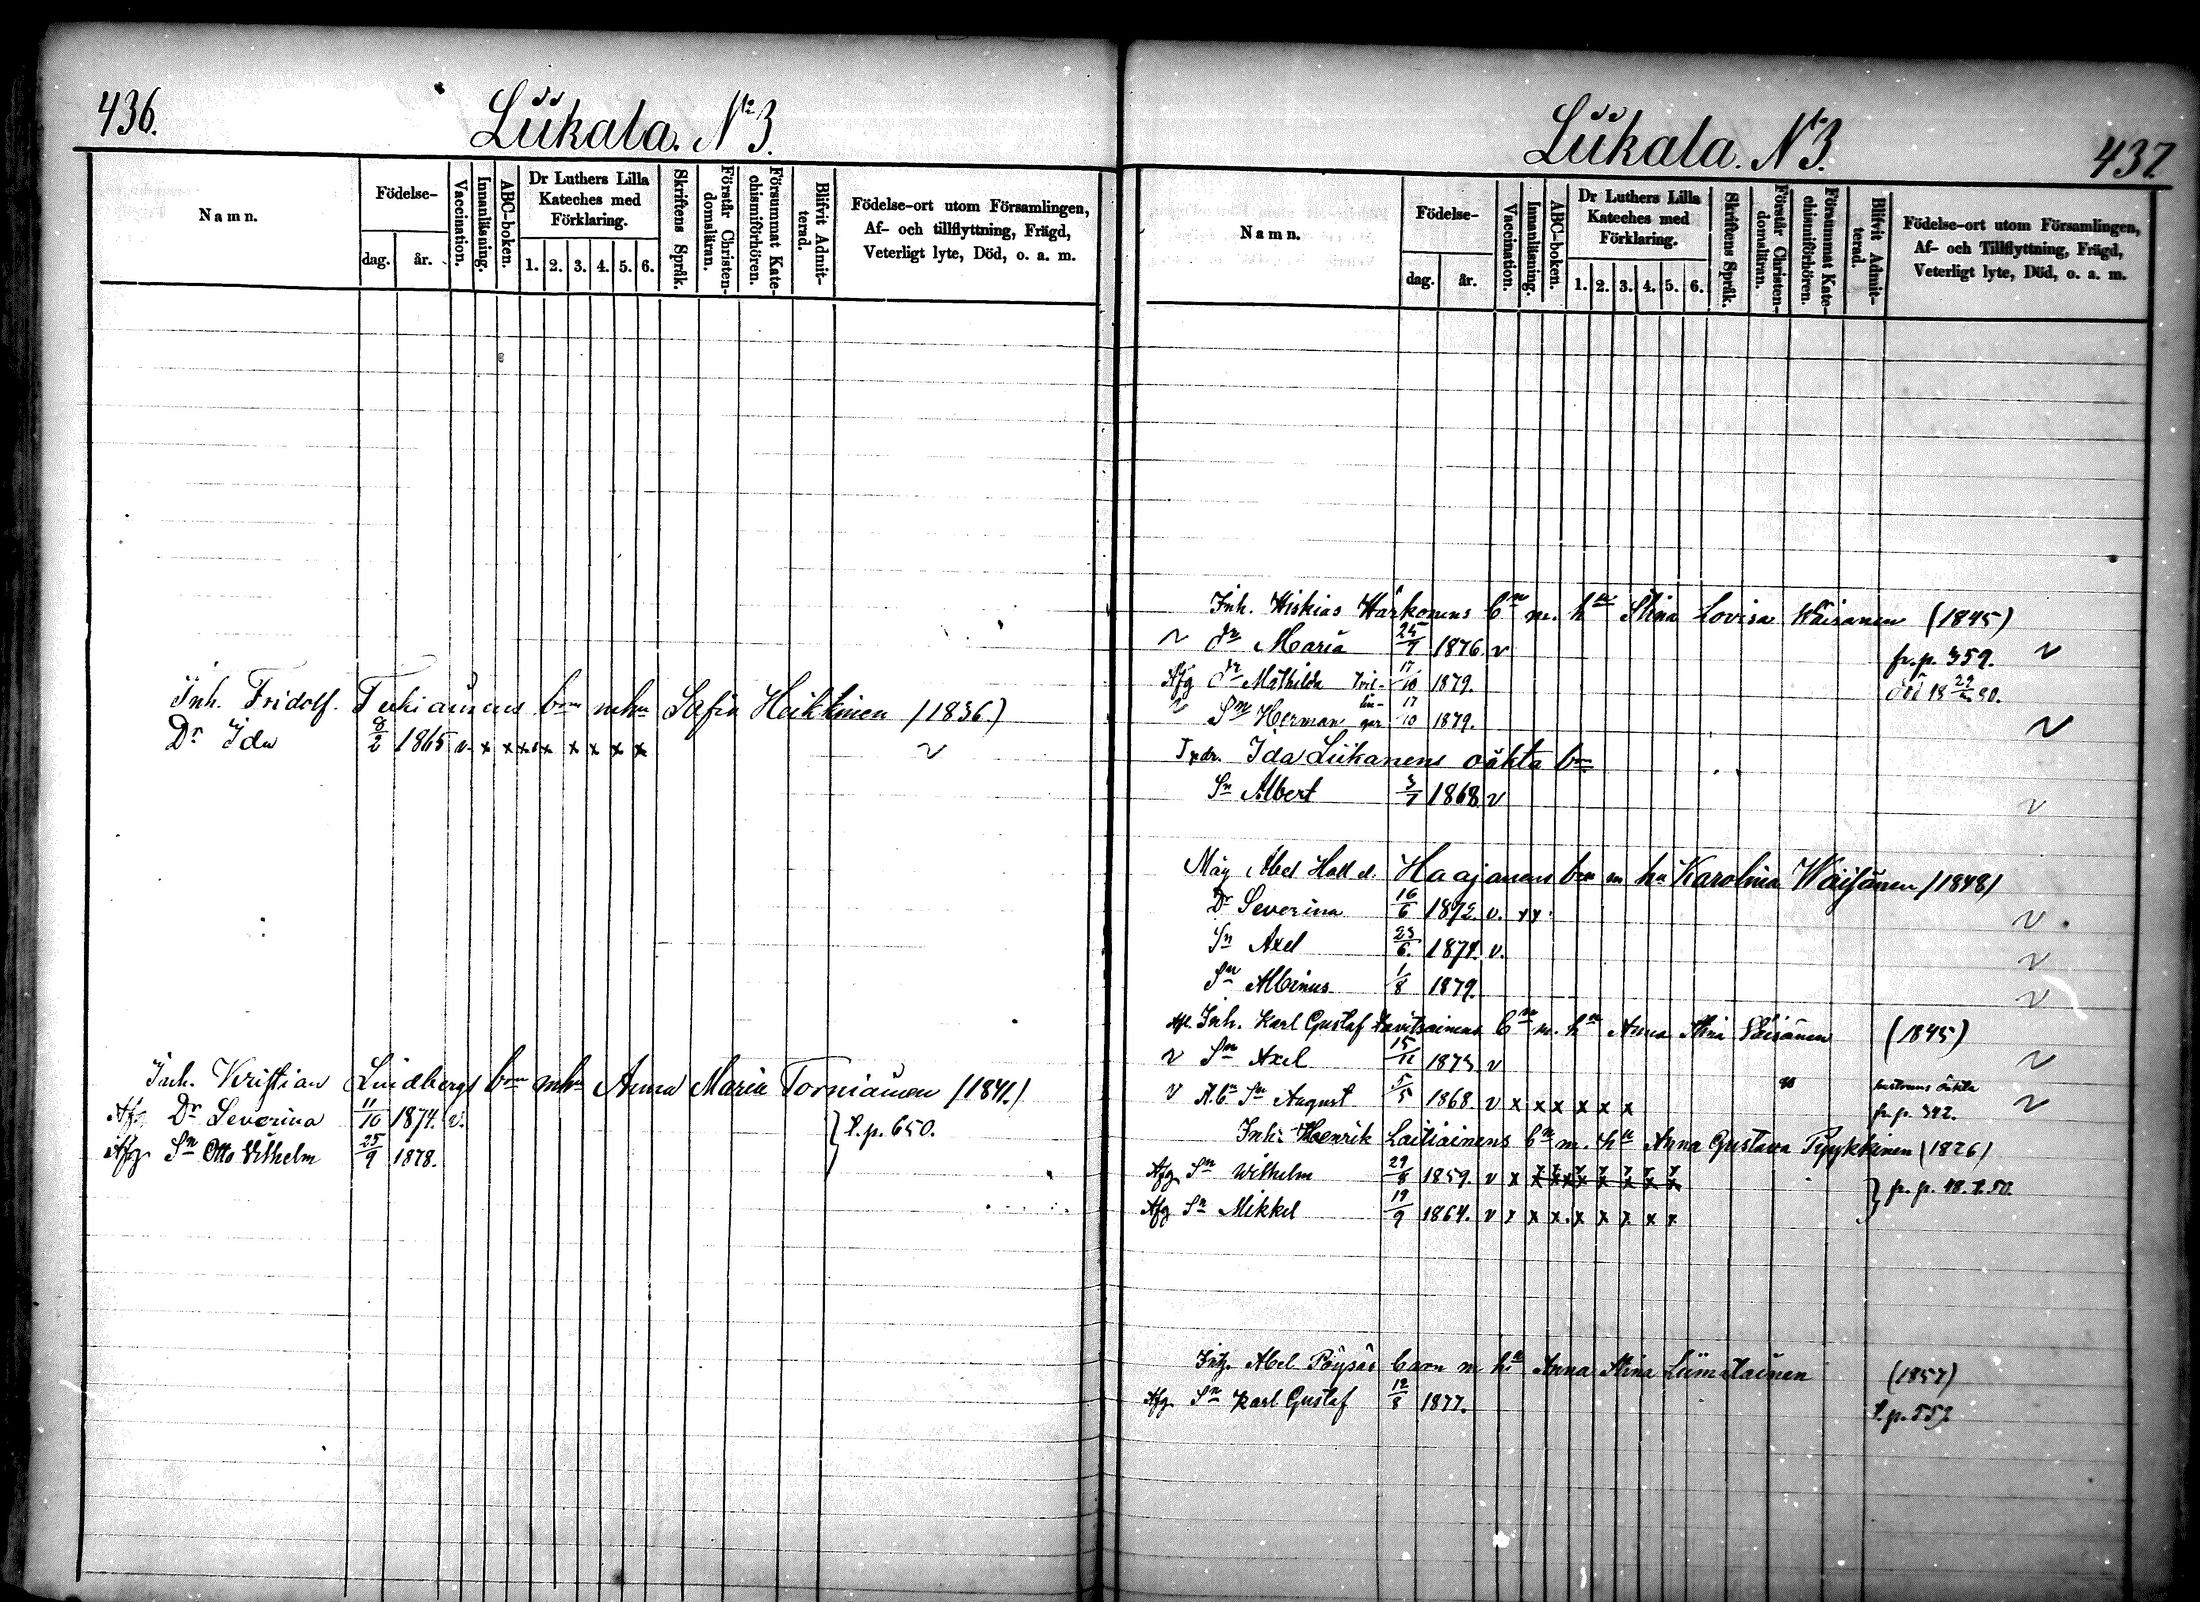 436.
Liikala. No 3.
Namn.
Födelse-
dag.
år.
Vaccination.
Innanläsning.
ABC-boken.
Dr Luthers Lilla
Kateches med
Förklaring.
1. 2. 3. 4. 5. 6.
Skriftens Språk.
Förstår Christen-
domsläran.
Försummat Kate-
chismiförhören.
Blifvit Admit-
terad.
Födelse-ort utom Församlingen,
Af- och tillflyttning, Frägd,
Veterligt lyte, Död, o. a. m.
Inh. Fridolf bn mhn Sofia Heikkinen (1836)
Dr Ida 8/2 1865 v. x x x x x x x x
Inh. Kristian Lindbergs bn mhn Anna Maria Torniainen (1841.)
Afg. Dr Severina 11/10 1874. v.
} l. p. 650.
Afg. Sn Otto Vilhelm 25/9 1878.
Liikala. N 3.
437
Namn.
Födelse-
dag.
år.
Vaccination.
Innanläsning.
ABC-boken.
Dr Luthers Lilla
Kateches med
Förklaring.
1. 2. 3. 4. 5. 6.
Skriftens Språk.
Förstår Christen-
domsläran.
Försummat Kate-
chismiförhören.
Blifvit Admit-
terad.
Födelse-ort utom Församlingen,
Af- och Tillflyttning, Frägd,
Veterligt lyte, Död, o. a. m.
Inh. Hiskias Härkönens bn m. hn Stina Lovisa Väisänen (1845)
v dr Maria 1876. v fr. p. 359. v
Afg dr Mathilda Tvil- 17/10 1879.
v Sn Herman lin-gar 17/10 1879. v
Ida Liikanens oäkta bn
Sn Albert 3/7 1868 v v
Måg Abel Haajanens bn m hn Karolina Wäisänen (1848)
Dr Severina 16/6 1872. v. x x. v
Sn Axel 23/6 1874. v. v
Sn Albinus 1/8 1879. v
Inh. Karl Gustaf bn m. hn Anna Stina Väisänen (1845)
v Sn Axel 1873 v v
v Sn August 5/5 1868. v x x x x x x hustruns oäkta v
fr. p. 392.
Inh. Henrik Laitiainens bn m. hn Anna Gustava Pyykkinen (1826)
Afg. Sn Wilhelm 29/8 1859. v x x x x x x x x
Afg Sn Mikkel 19/9 1864. v x x x x x x x x
Abel Pöysäs barn m hn Anna Stina Liimatainen (1857)
Afg. Sn Karl Gustaf 12/8 1877. l. p. 557